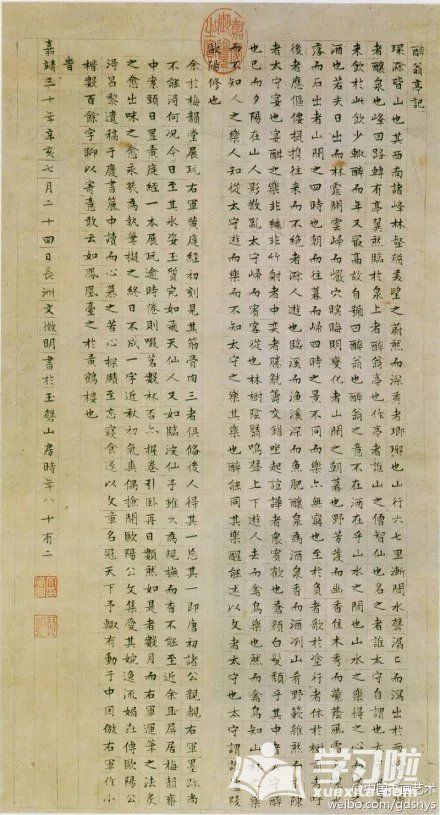 醉翁亭記
環滁皆山也其西南諸峰林壑尤美望之蔚然而深秀者瑯琊也山行六七里漸聞水聲潺〻而瀉出於
者釀泉也峰回路轉有亭翼然臨於泉上者醉翁亭也作亭者誰山之僧智仙也名之者誰太守自謂也太
來飲於此飲少輒醉而年又最高故自號曰醉翁也醉翁之意不在酒在乎山水之間也山水之樂得之心
酒也若夫日出而林霏開雲歸而巖穴暝晦明變化者山間之朝暮也野芳發而幽香佳木秀而繁蔭風霜
落而石出者山間之四時也朝而往暮而歸四時之景不同而樂亦無窮也至於負者歌於塗行者休於樹 呼
後者應傴僂提攜往來而不絕者滁人遊也臨溪而漁溪深而魚肥釀泉為酒泉香而酒冽山肴野蔌雜然而 陳
者太守宴也宴酣之樂非絲非竹射者中奕者勝觥籌交錯坐起諠譁者眾賓歡也蒼顏白髮頹乎其中 醉
也已而夕陽在山人影散亂太守歸而賓客從也林樹陰翳鳴聲上下遊人去而禽鳥樂也然而禽鳥知山
而不知人之樂人知從太守遊而樂而不知太守之樂其樂也醉能同其樂醒能述以文者太守也太守謂 陵
歐陽修也
余於梅韻堂展玩右軍黃庭經初刻見其筋骨肉三者俱備後人得其一忘其一即唐初諸公親覩右軍墨跡尚
不能得何況今日至其水姿玉質宛如飛天仙人又如臨波仙子雖久為規撫而杳不能至近余且屏居梅韻齋
中案頭日置黃庭經一本展玩逾時倦則啜茗數杯否亦握卷引臥再日數然如是者數月而右軍運筆之法炙
之愈出味之愈永執為執筆擬之終日不成一字近秋初氣爽偶撿閱歐陽公文集愛其婉逸流媚世傳歐陽公
得昌黎遺稿于廢書簏中讀而心慕之苦心探賾至忘寢食遂以文章名冠天下予輒有動于中因倣右軍作小
楷數百餘字聊以寄意敢云如鳳凰臺之於黃鶴樓也
昔
嘉靖三十年辛亥七月二十四日長洲文徵明書於玉磬山房時年八十有二
学习啦
@中国书画艺术
weibo.com/gdshys